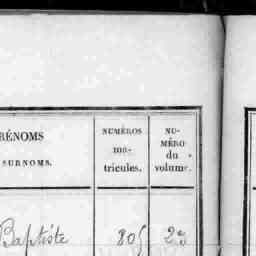 RÉNOMS
SURNOMS.
NUMÉROS
ma-
tricules.
NU-
MÉRO
du
volume.
Baptiste